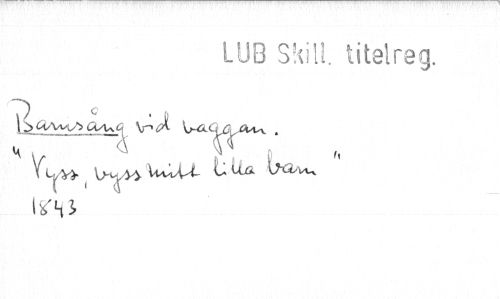 LUB Skill. titelreg.
Barnsång vid vaggan.
" Vyss, vyss mitt lilla barn "
1843